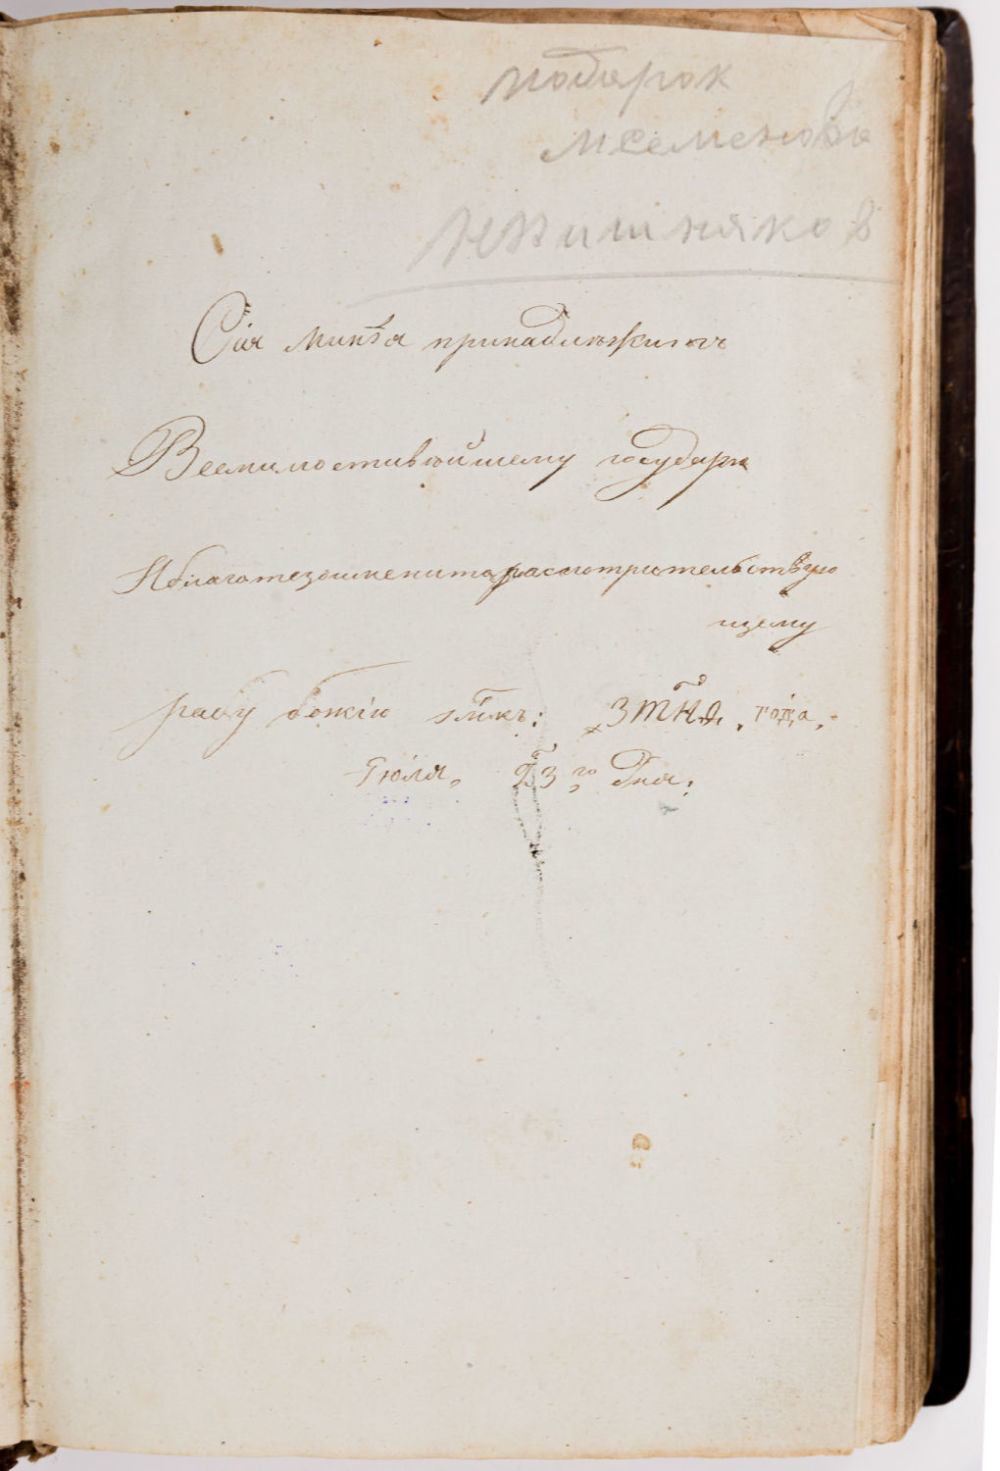 подарок
мсеменовы
Нвишняков
Сія минѣя принадлѣжитъ
Всемилостивѣйшему государю
Иблаготезоименито рассмотрительствую
щему
рабу божію : ҂ЗТНА, года,
Іюля, го Дня: